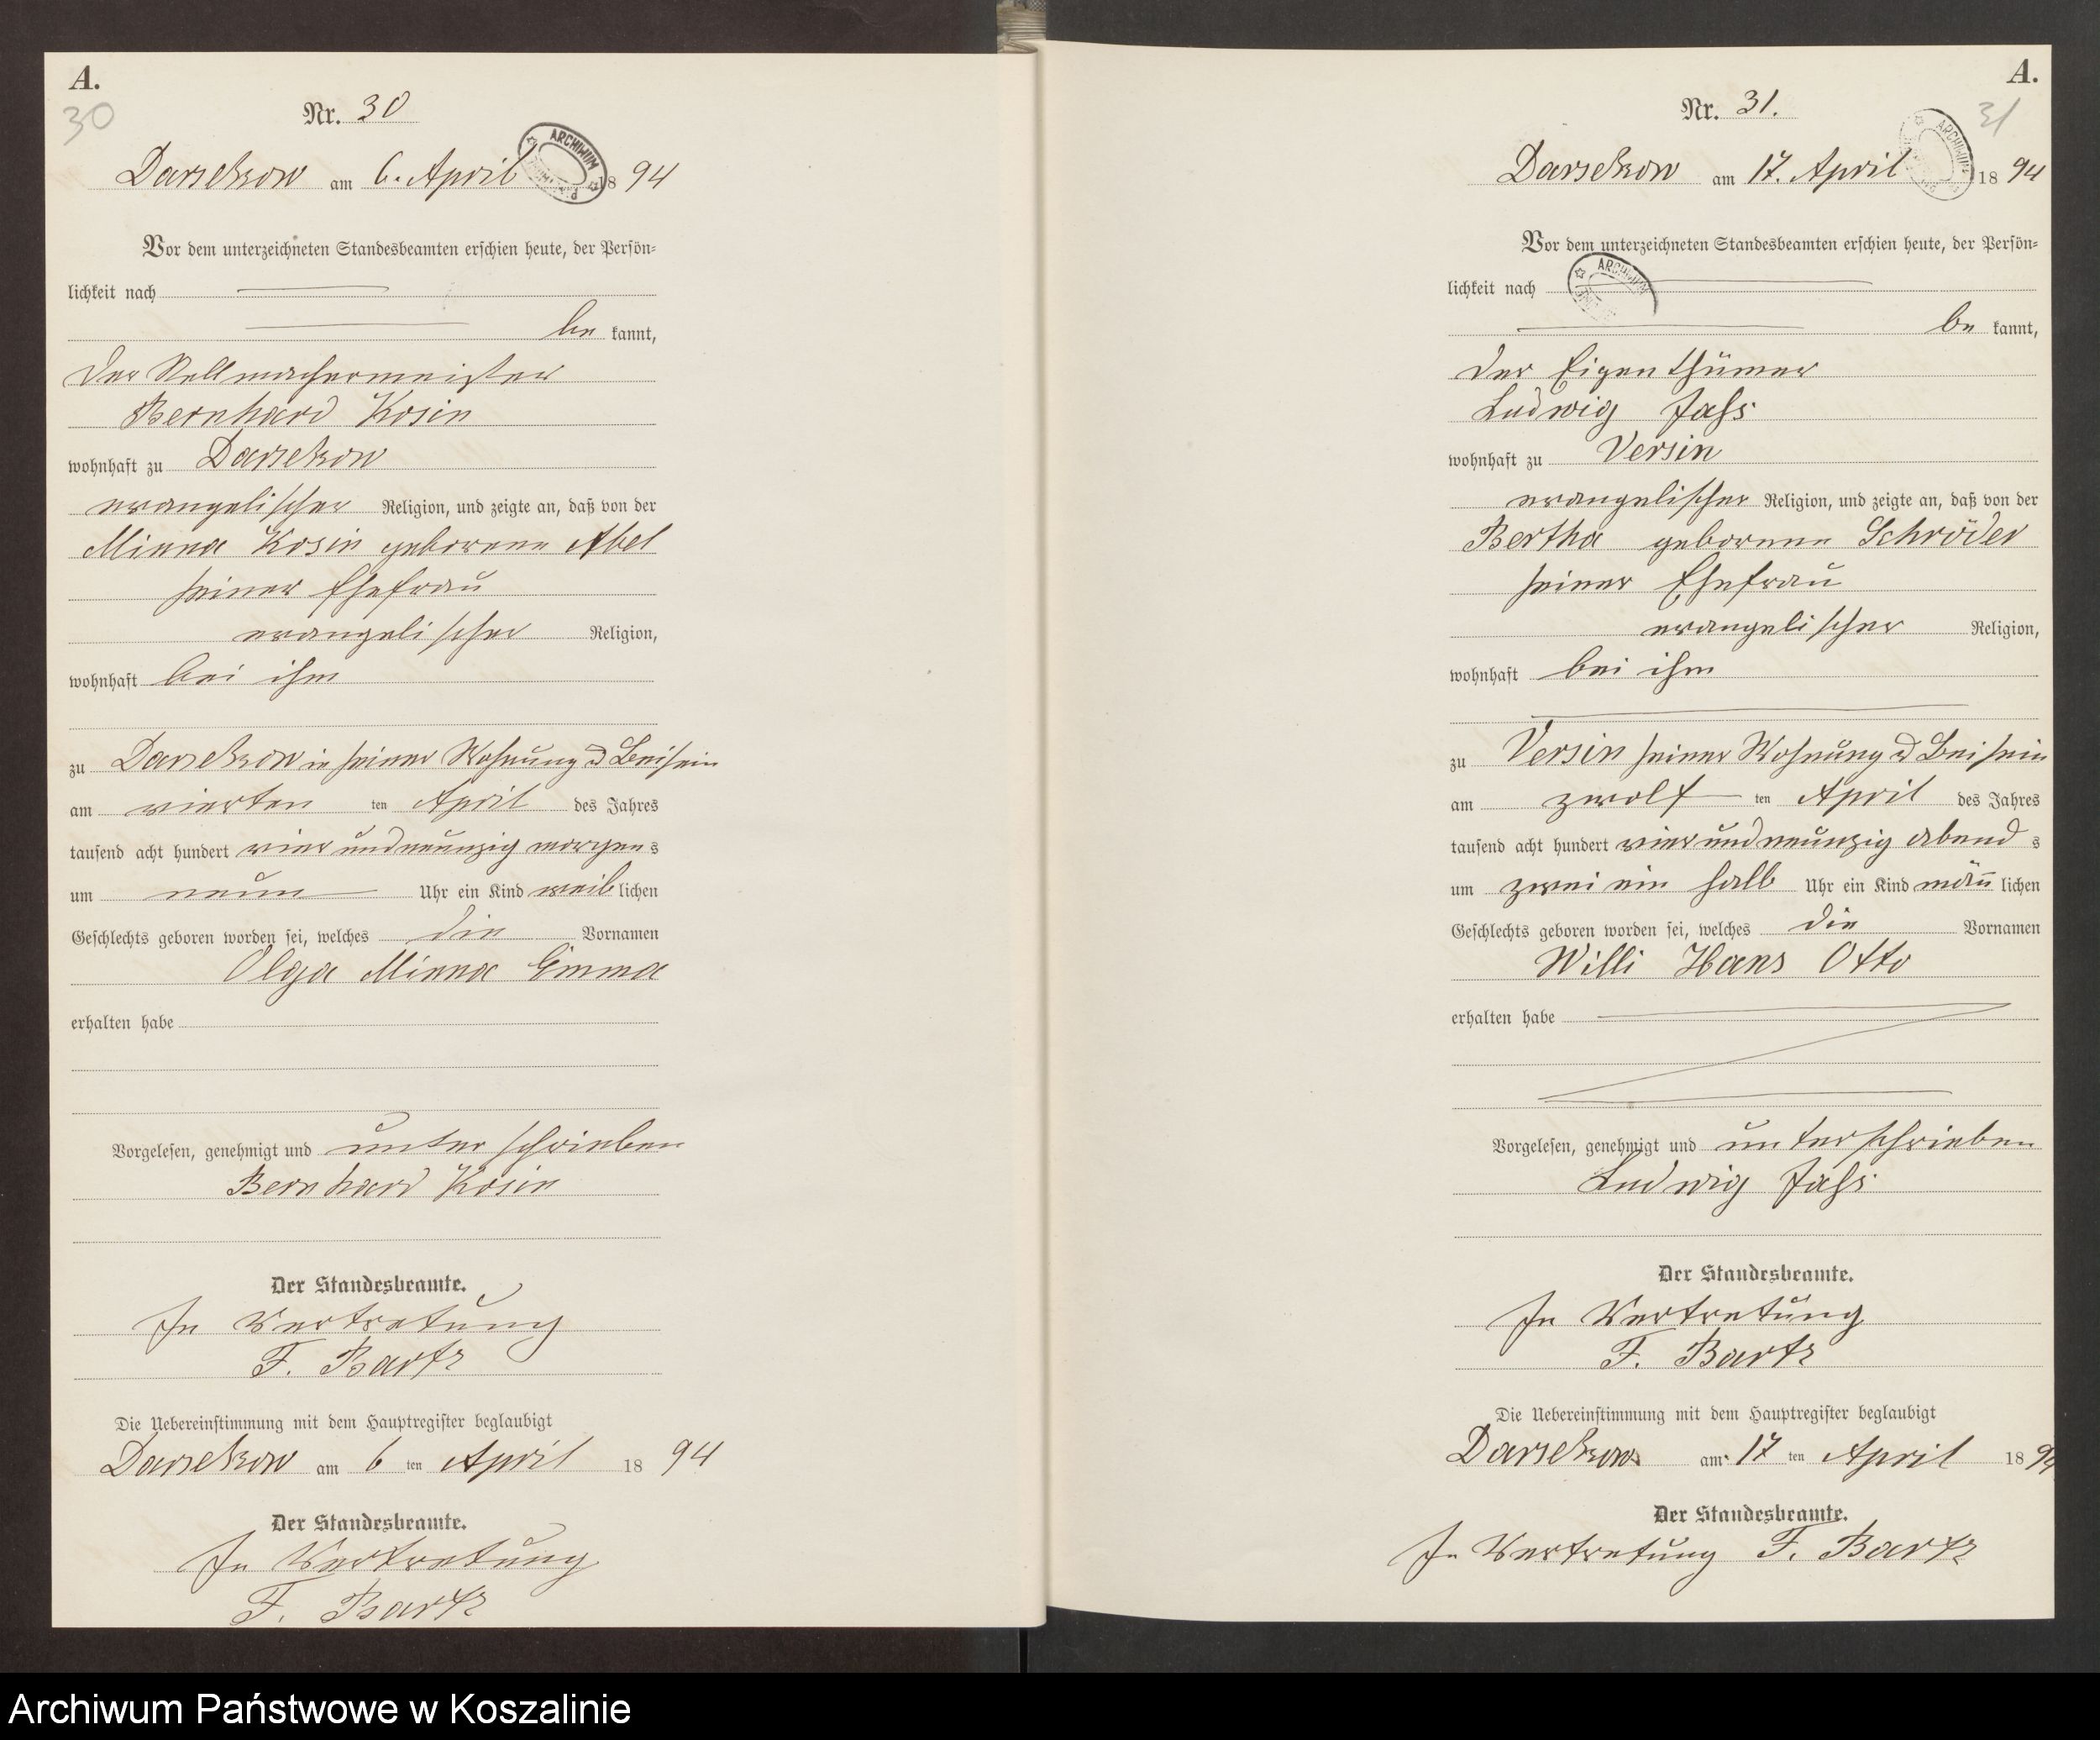 A.
30
Nr. 30
ARCHIWUM
Darsekow am 6. April 1894
Vor dem unterzeichneten Standesbeamten erschien heute, der Persön-
lichkeit nach
be kannt,
der Stellmachermeister
Bernhard Kosin
wohnhaft zu Darsekow
evangelischer Religion, und zeigte an, daß von der
Minna Kosin geborene Abel
seiner Ehefrau
evangelischer Religion,
wohnhaft bei ihm
zu Darsekow in seiner Wohnung Beisein
am vierten ten April des Jahres
tausend acht hundert vier und neunzig morgens
um neun Uhr ein Kind weiblichen
Geschlechts geboren worden sei, welches die Vornamen
Olga Minna Emma
erhalten habe
Vorgelesen, genehmigt und unterschrieben
Bernhard Kosin
Der Standesbeamte.
In Vertretung
F. Bartz
Die Uebereinstimmung mit dem Hauptregister beglaubigt
Darsekow am 6 ten April 1894
Der Standesbeamte.
In Vertretung
F. Bartz
A.
31
Nr. 31.
ARCHIWUM
Darsekow am 17. April 1894
Vor dem unterzeichneten Standesbeamten erschien heute, der Persön-
ARCHIWUM
lichkeit nach
be kannt,
der Eigenthümer
Ludwig Jahs
wohnhaft zu Versin
evangelischer Religion, und zeigte an, daß von der
Bertha geborene Schröder
seiner Ehefrau
evangelischer Religion,
wohnhaft bei ihm
zu Versin seiner Wohnung Beisein
am zwölf ten April des Jahres
tausend acht hundert vier und neunzig abends
um zwei ein halb Uhr ein Kind männlichen
Geschlechts geboren worden sei, welches die Vornamen
Willi Hans Otto
erhalten habe
Vorgelesen, genehmigt und unterschrieben
Ludwig Jahs
Der Standesbeamte.
In Vertretung
F. Bartz
Die Uebereinstimmung mit dem Hauptregister beglaubigt
Darsekow am 17 ten April 1894
Der Standesbeamte.
In Vertretung F. Bartz
Archiwum Państwowe w Koszalinie